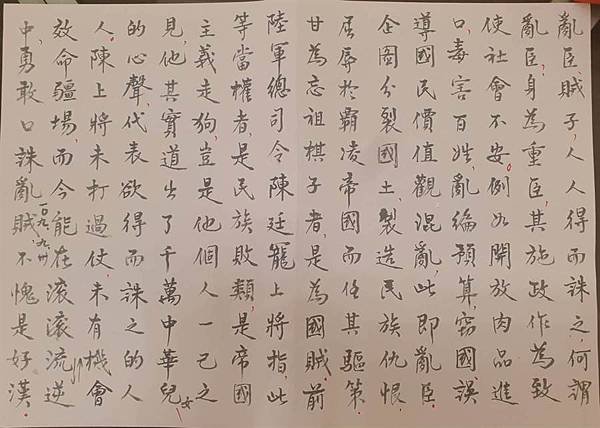 亂臣賊子,人人得而誅之,何謂
亂臣,身為重臣,其施政作為致
使社會不安。例如開放肉品進
口,毒害百姓,亂編預算,竊國誤
導國民價值觀混亂,此即亂臣,
企圖分裂國土,製造民族仇恨
屈辱於霸凌帝國而任其驅策,
甘為忘祖棋子者,是為國賊,前
陸軍總司令陳廷寵上將指,此
等當權者,是民族敗類,是帝國
主義走狗,豈是他個人一己之
見,他其實道出了千萬中華兒女
的心聲,代表欲得而誅之的人
人,陳上將未打過仗,未有機會
效命疆場,而今能在滾滾流逆
中,勇敢口誅亂賊,不愧是好漢.
一○九、九、卅